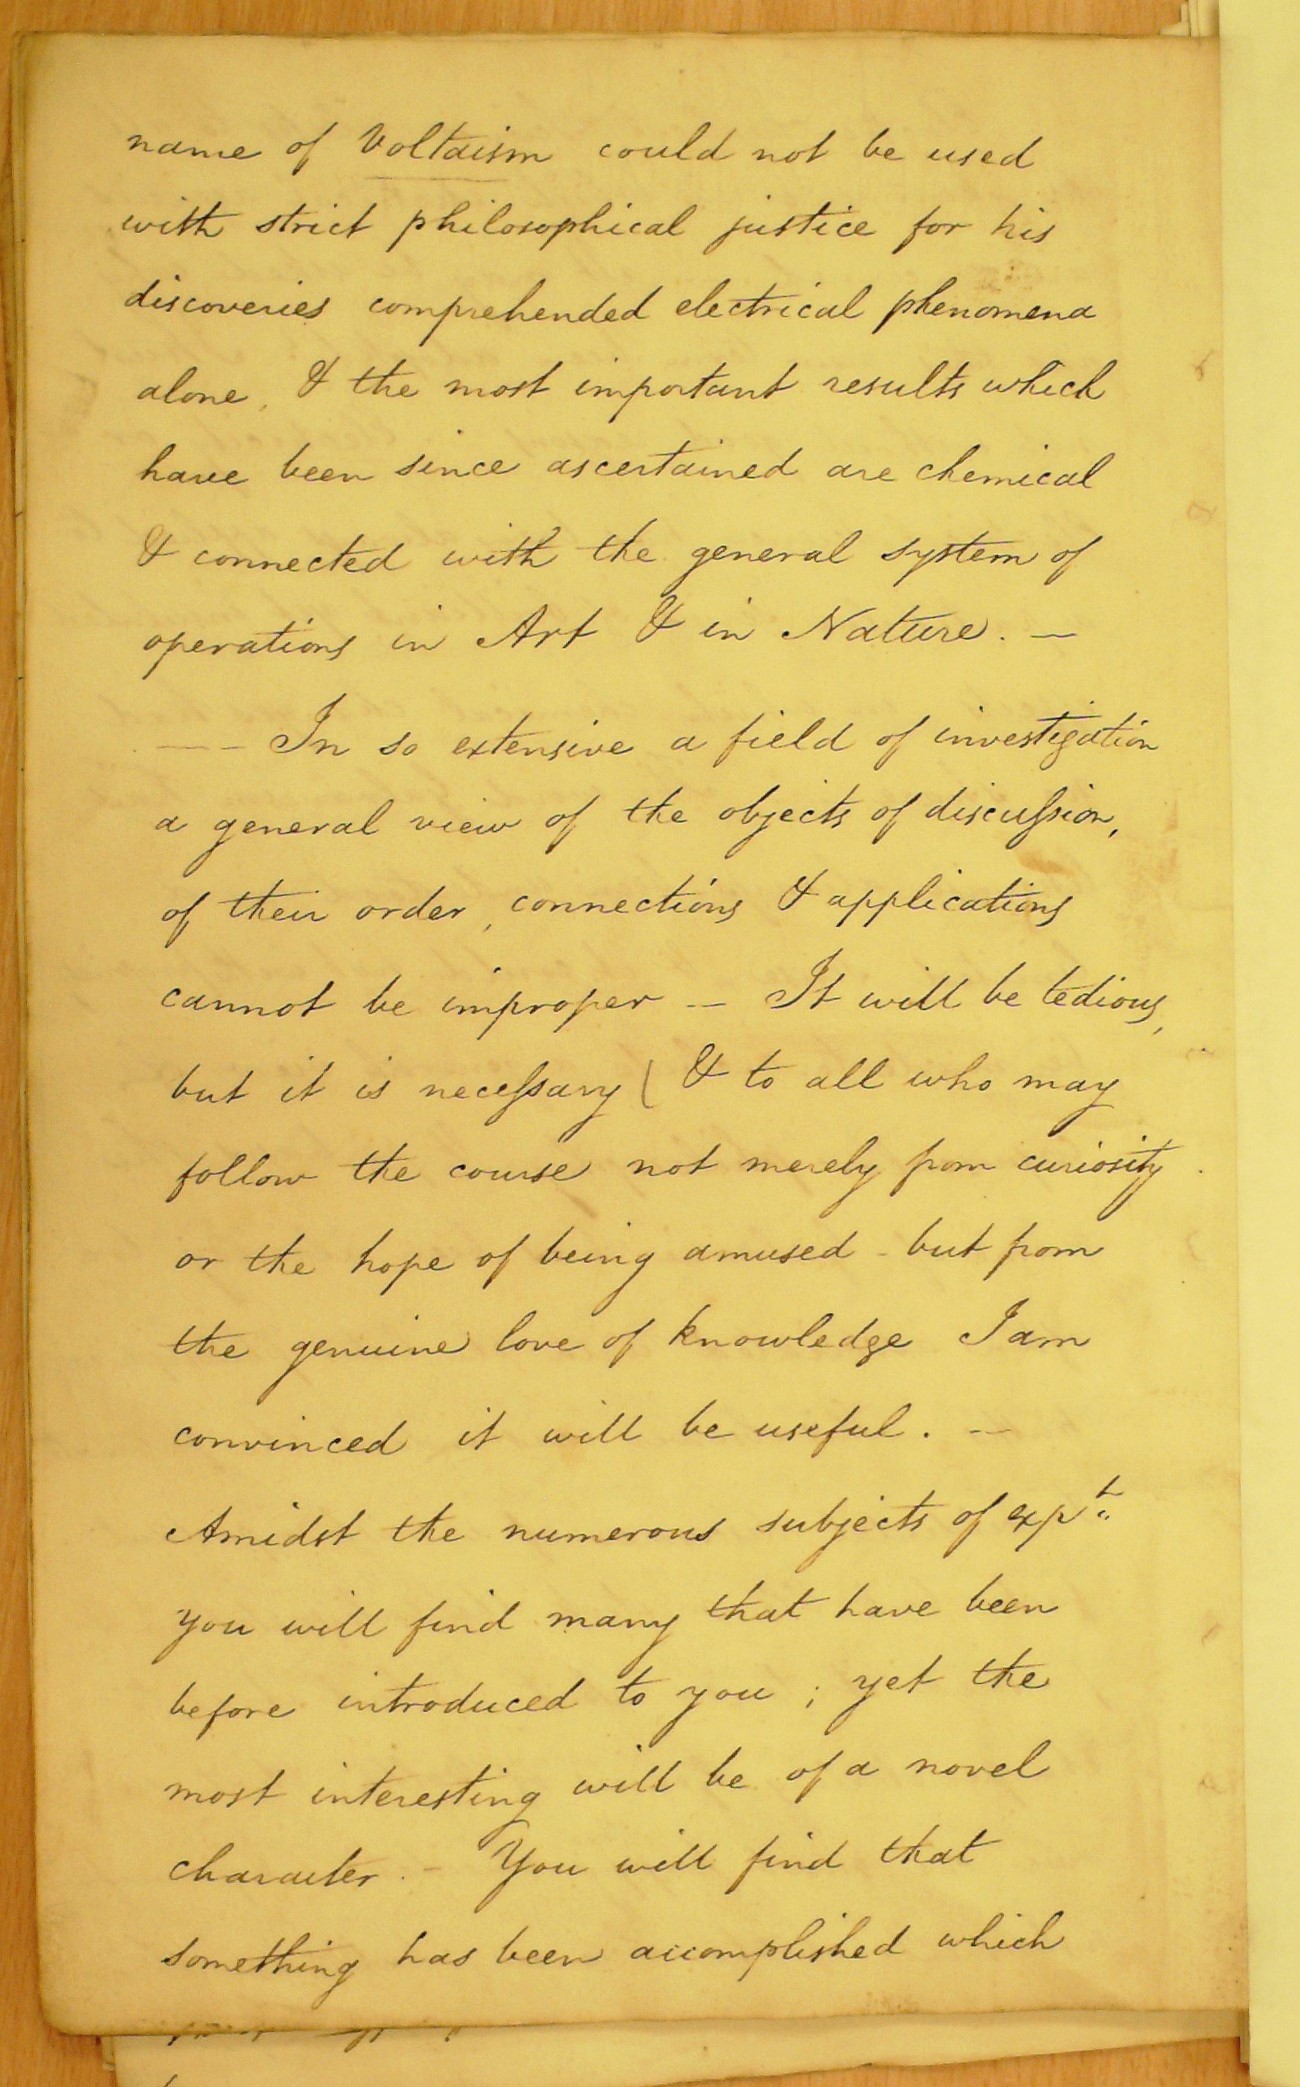 name of Voltaism could not be used
with strict philosophical justice for his
discoveries comprehended electrical phenomena
alone, & the most important results which
have been since ascertained are chemical
& connected with the general system of
operations in Art & in Nature. —
— – In so extensive a field of investigation
a general view of the objects of discuſsion,
of their order, connections & applications
cannot be improper — It will be tedious,
but it is neceſsary ( & to all who may
follow the course not merely from curiosity
or the hope of being amused - but from
the genuine love of knowledge I am
convinced it will be useful. —
Amidst the numerous subjects of expt.
you will find many that have been
before introduced to you ; yet the
most interesting will be of a novel
character. – You will find that
something has been accomplished which